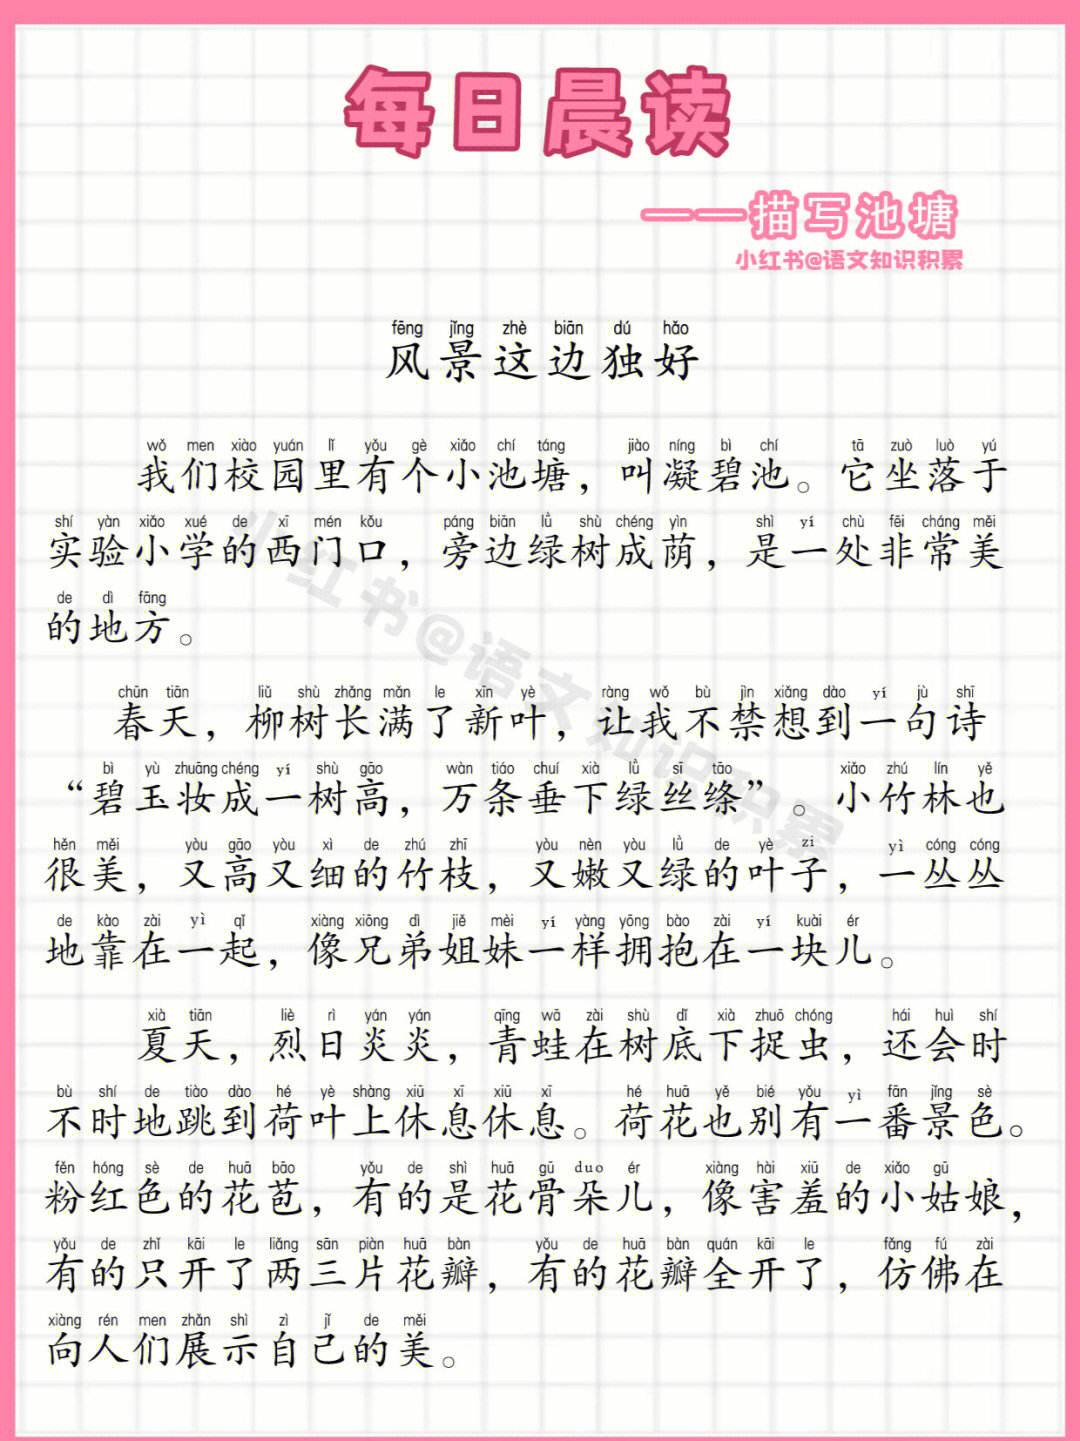 每日晨读
——描写池塘
小红书@语文知识积累
fēng jǐng zhè biān dú hǎo
风景这边独好
wǒ men xiào yuán lǐ yǒu gè xiǎo chí táng jiào níng bì chí tā zuò luò yú
我们校园里有个小池塘，叫凝碧池。它坐落于
shí yàn xiǎo xué de xī mén kǒu páng biān lǜ shù chéng yìn shì yí chù fēi cháng měi
实验小学的西门口，旁边绿树成荫，是一处非常美
de dì fāng
的地方。
chūn tiān liǔ shù zhǎng mǎn le xīn yè ràng wǒ bù jìn xiǎng dào yí jù shī
春天，柳树长满了新叶，让我不禁想到一句诗
bì yù zhuāng chéng yí shù gāo wàn tiáo chuí xià lǜ sī tāo xiǎo zhú lín yě
“碧玉妆成一树高，万条垂下绿丝绦”。小竹林也
hěn měi yòu gāo yòu xì de zhú zhī yòu nèn yòu lǜ de yè zi yì cóng cóng
很美，又高又细的竹枝，又嫩又绿的叶子，一丛丛
de kào zài yì qǐ xiàng xiōng dì jiě mèi yí yàng yōng bào zài yí kuài ér
地靠在一起，像兄弟姐妹一样拥抱在一块儿。
xià tiān liè rì yán yán qīng wā zài shù dǐ xià zhuō chóng hái huì shí
夏天，烈日炎炎，青蛙在树底下捉虫，还会时
bù shí de tiào dào hé yè shàng xiū xī xiū xī hé huā yě bié yǒu yì fān jǐng sè
不时地跳到荷叶上休息休息。荷花也别有一番景色。
fěn hóng sè de huā bāo yǒu de shì huā gū duo ér xiàng hài xiū de xiǎo gū
粉红色的花苞，有的是花骨朵儿，像害羞的小姑娘，
yǒu de zhǐ kāi le liǎng sān piàn huā bàn yǒu de huā bàn quán kāi le fǎng fú zài
有的只开了两三片花瓣，有的花瓣全开了，仿佛在
xiàng rén men zhǎn shì zì jǐ de měi
向人们展示自己的美。
小红书@语文知识积累